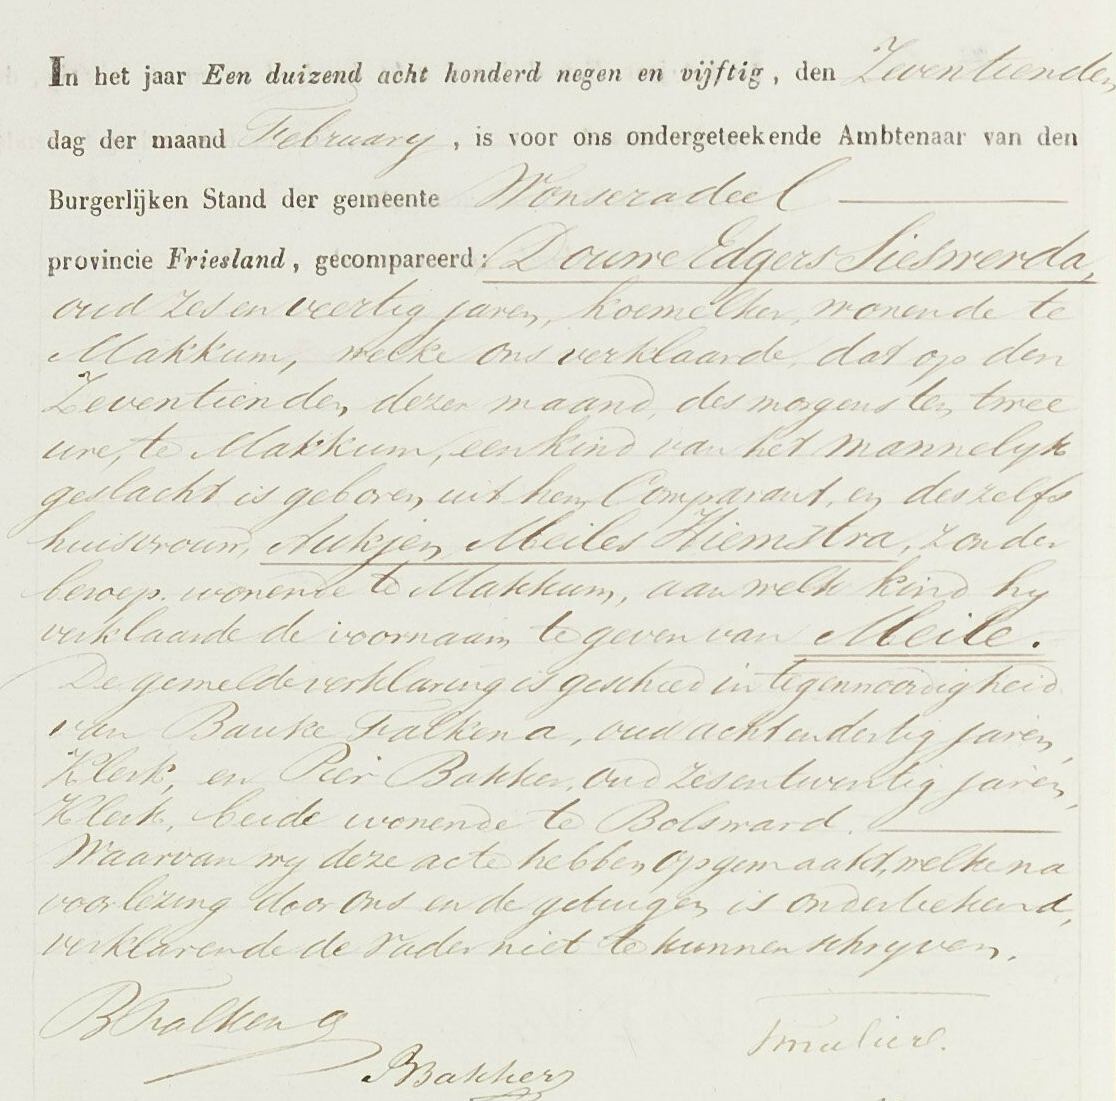 In het jaar Een duizend acht honderd negen en vijftig, den Zeventienden
dag der maand February, is voor ons ondergeteekende Ambtenaar van den
Burgerlijken Stand der gemeente Wonseradeel
provincie Friesland, gecompareerd: Douwe Edgers Sieswerda,
oud zes en veertig jaren, koemelker, wonende te
Makkum, welke ons verklaarde, dat op den
Zeventienden dezer maand, des morgens ten twee
ure, te Makkum, een kind van het mannelyk
geslacht is geboren, uit hem Comparant, en deszelfs
huisvrouw, Aukjen Meiles Hiemstra, zonder
beroep, wonende te Makkum, aan welk kind hy
verklaarde de voornaam te geven van Meile.
De gemelde verklaring is geschied in tegenwoordigheid
van Bauke Falkena, oud achtendertig jaren,
Klerk, en Pier Bakker, oud zesentwintig jaren,
Klerk, beide wonende te Bolsward.
Waarvan wy deze acte hebben opgemaakt, welke na
voorlezing door ons en de getuigen is onderteekend,
verklarende de vader niet te kunnen schryven.
B Falkena
PBakker